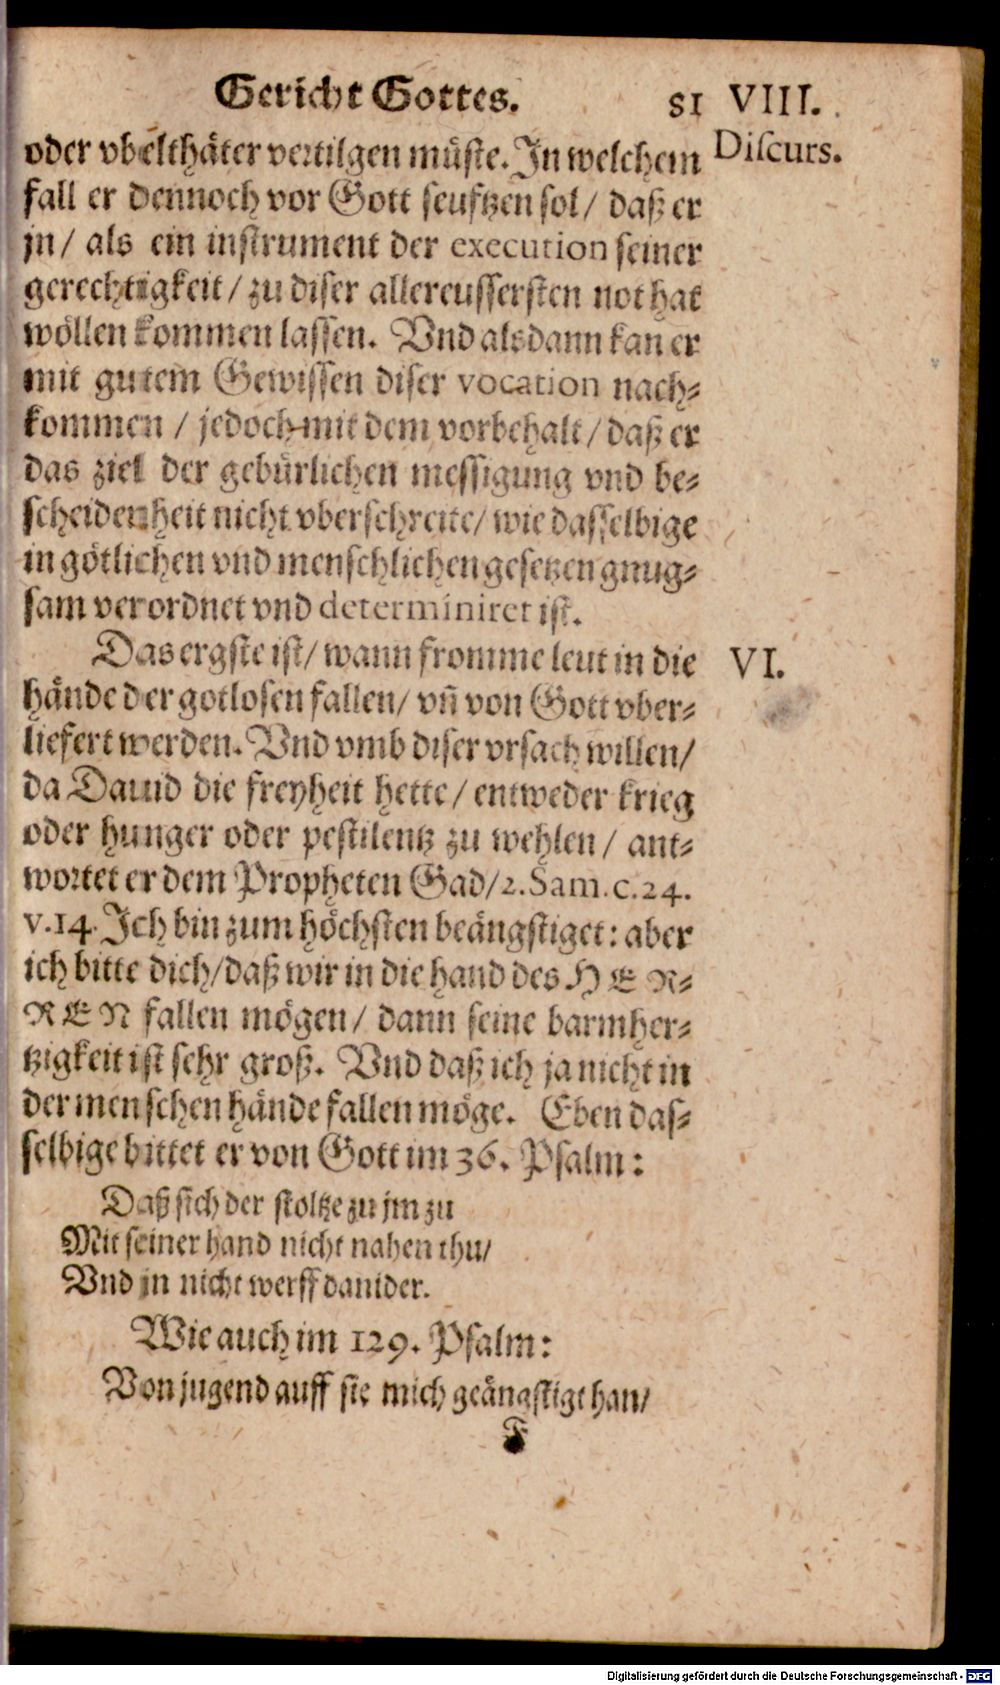 Gericht Gottes. 81 VIII.
Discurs.
oder vbelthäter vertilgen müste. In welchem
fall er dennoch vor Gott seufftzen sol / daß er
jn / als ein instrument der execution seiner
gerechtigkeit / zu diser allereussersten not hat
wöllen kommen lassen. Vnd alsdann kan er
mit gutem Gewissen diser vocation nach⸗
kommen / jedoch mit dem vorbehalt / daß er
das ziel der gebürlichen messigung vnd be⸗
scheidenheit nicht vberschreite / wie dasselbige
in götlichen vnd menschlichen gesetzen gnug⸗
sam verordnet vnd determiniret ist.
Das ergste ist / wann fromme leut in die VI.
hände der gotlosen fallen / vñ von Gott vber⸗
liefert werden. Vnd vmb diser vrsach willen /
da Dauid die freyheit hette / entweder krieg
oder hunger oder pestilentz zu wehlen / ant⸗
wortet er dem Propheten Gad / 2. Sam. c. 24.
v. 14. Ich bin zum höchsten beängstiget: aber
ich bitte dich / daß wir in die hand des HER⸗
REN fallen mögen / dann seine barmher⸗
tzigkeit ist sehr groß. Vnd daß ich ja nicht in
der menschen hände fallen möge. Eben das⸗
selbige bittet er von Gott im 36. Psalm:
Daß sich der stoltze zu jm zu
Mit seiner hand nicht nahen thu /
Vnd jn nicht werff danider.
Wie auch im 129. Psalm:
Von jugend auff sie mich geängstigt han /
F
Digitalisierung gefördert durch die Deutsche Forschungsgemeinschaft - DFG